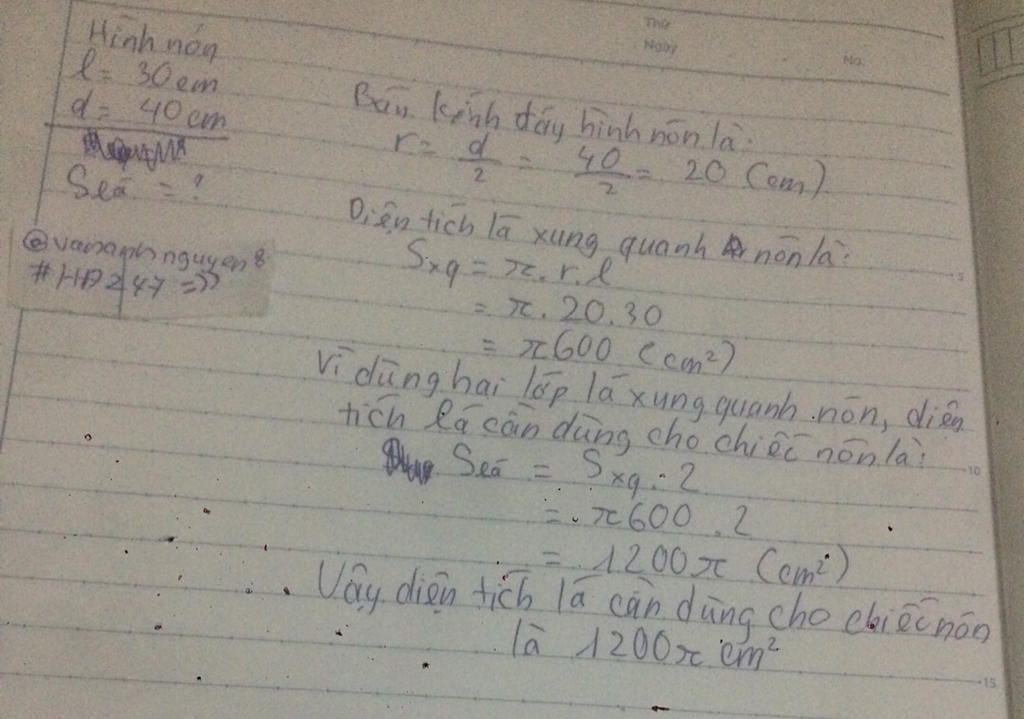 Thứ
Ngày
No.
Hình nón
l = 30cm
d = 40cm
Slá = ?
@vananhnguyen8
#HĐ247 =))
Bán kính đáy hình nón là:
r = d/2 = 40/2 = 20 (cm)
Diện tích lá xung quanh nón là:
Sxq = π.r.l
= π.20.30
= π600 (cm²)
Vì dùng hai lớp lá xung quanh nón, diện
tích lá cần dùng cho chiếc nón là:
Slá = Sxq.2
= π600.2
= 1200π (cm²)
Vậy diện tích lá cần dùng cho chiếc nón
là 1200π cm²
5
10
15